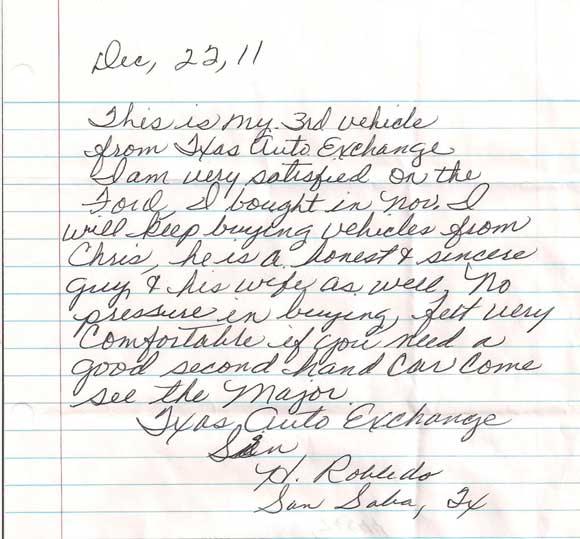 Dec, 22, 11
This is my 3rd vehicle
from Txas Auto Exchange
I am very satisfied on the
Ford, I bought in Nov. I
will keep buying vehicles from
Chris, he is a honest & sincere
guy, & his wife as well, No
pressure in buying, felt very
Comfortable if you need a
good second hand Car Come
see the Major.
Txas, Auto Exchange
H. Robledo
San Saba, Tx